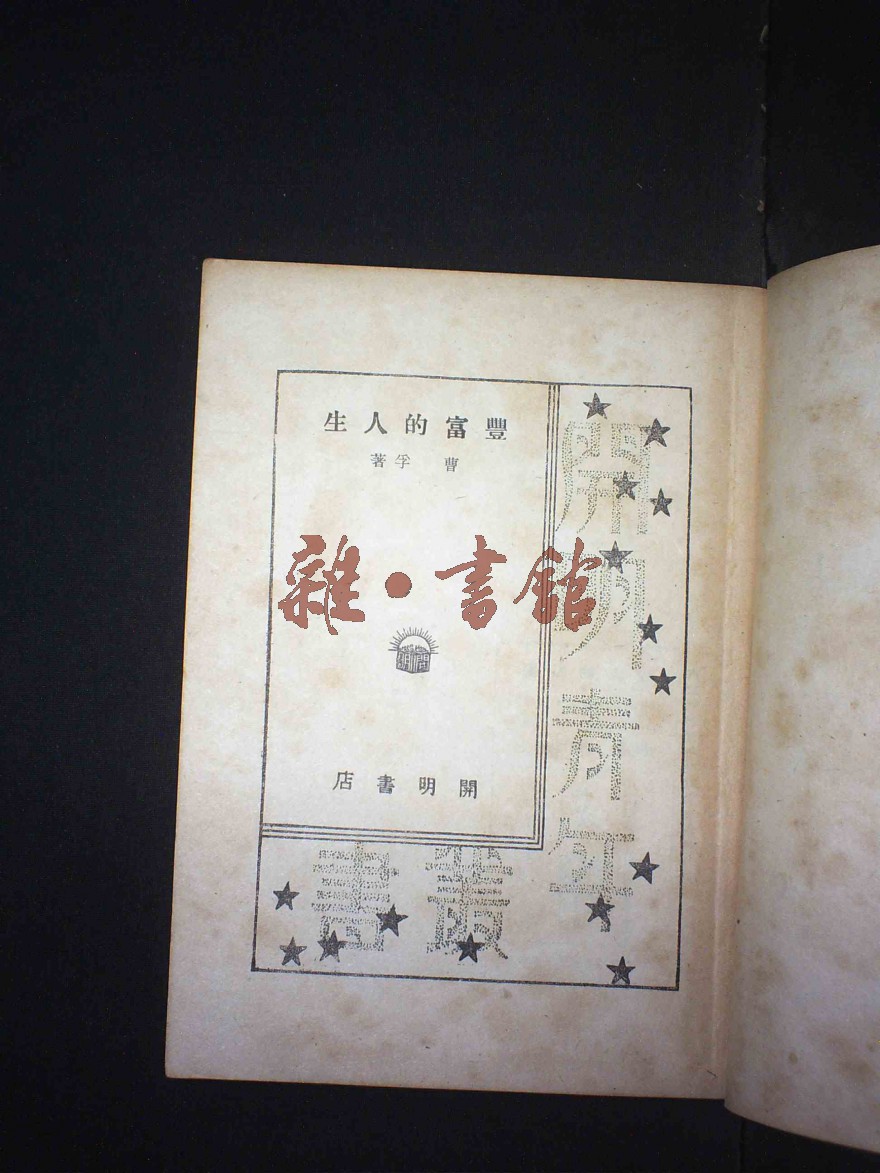 豐富的人生
曹孚著
雜·書館
開明
開明書店
開明青年
叢書